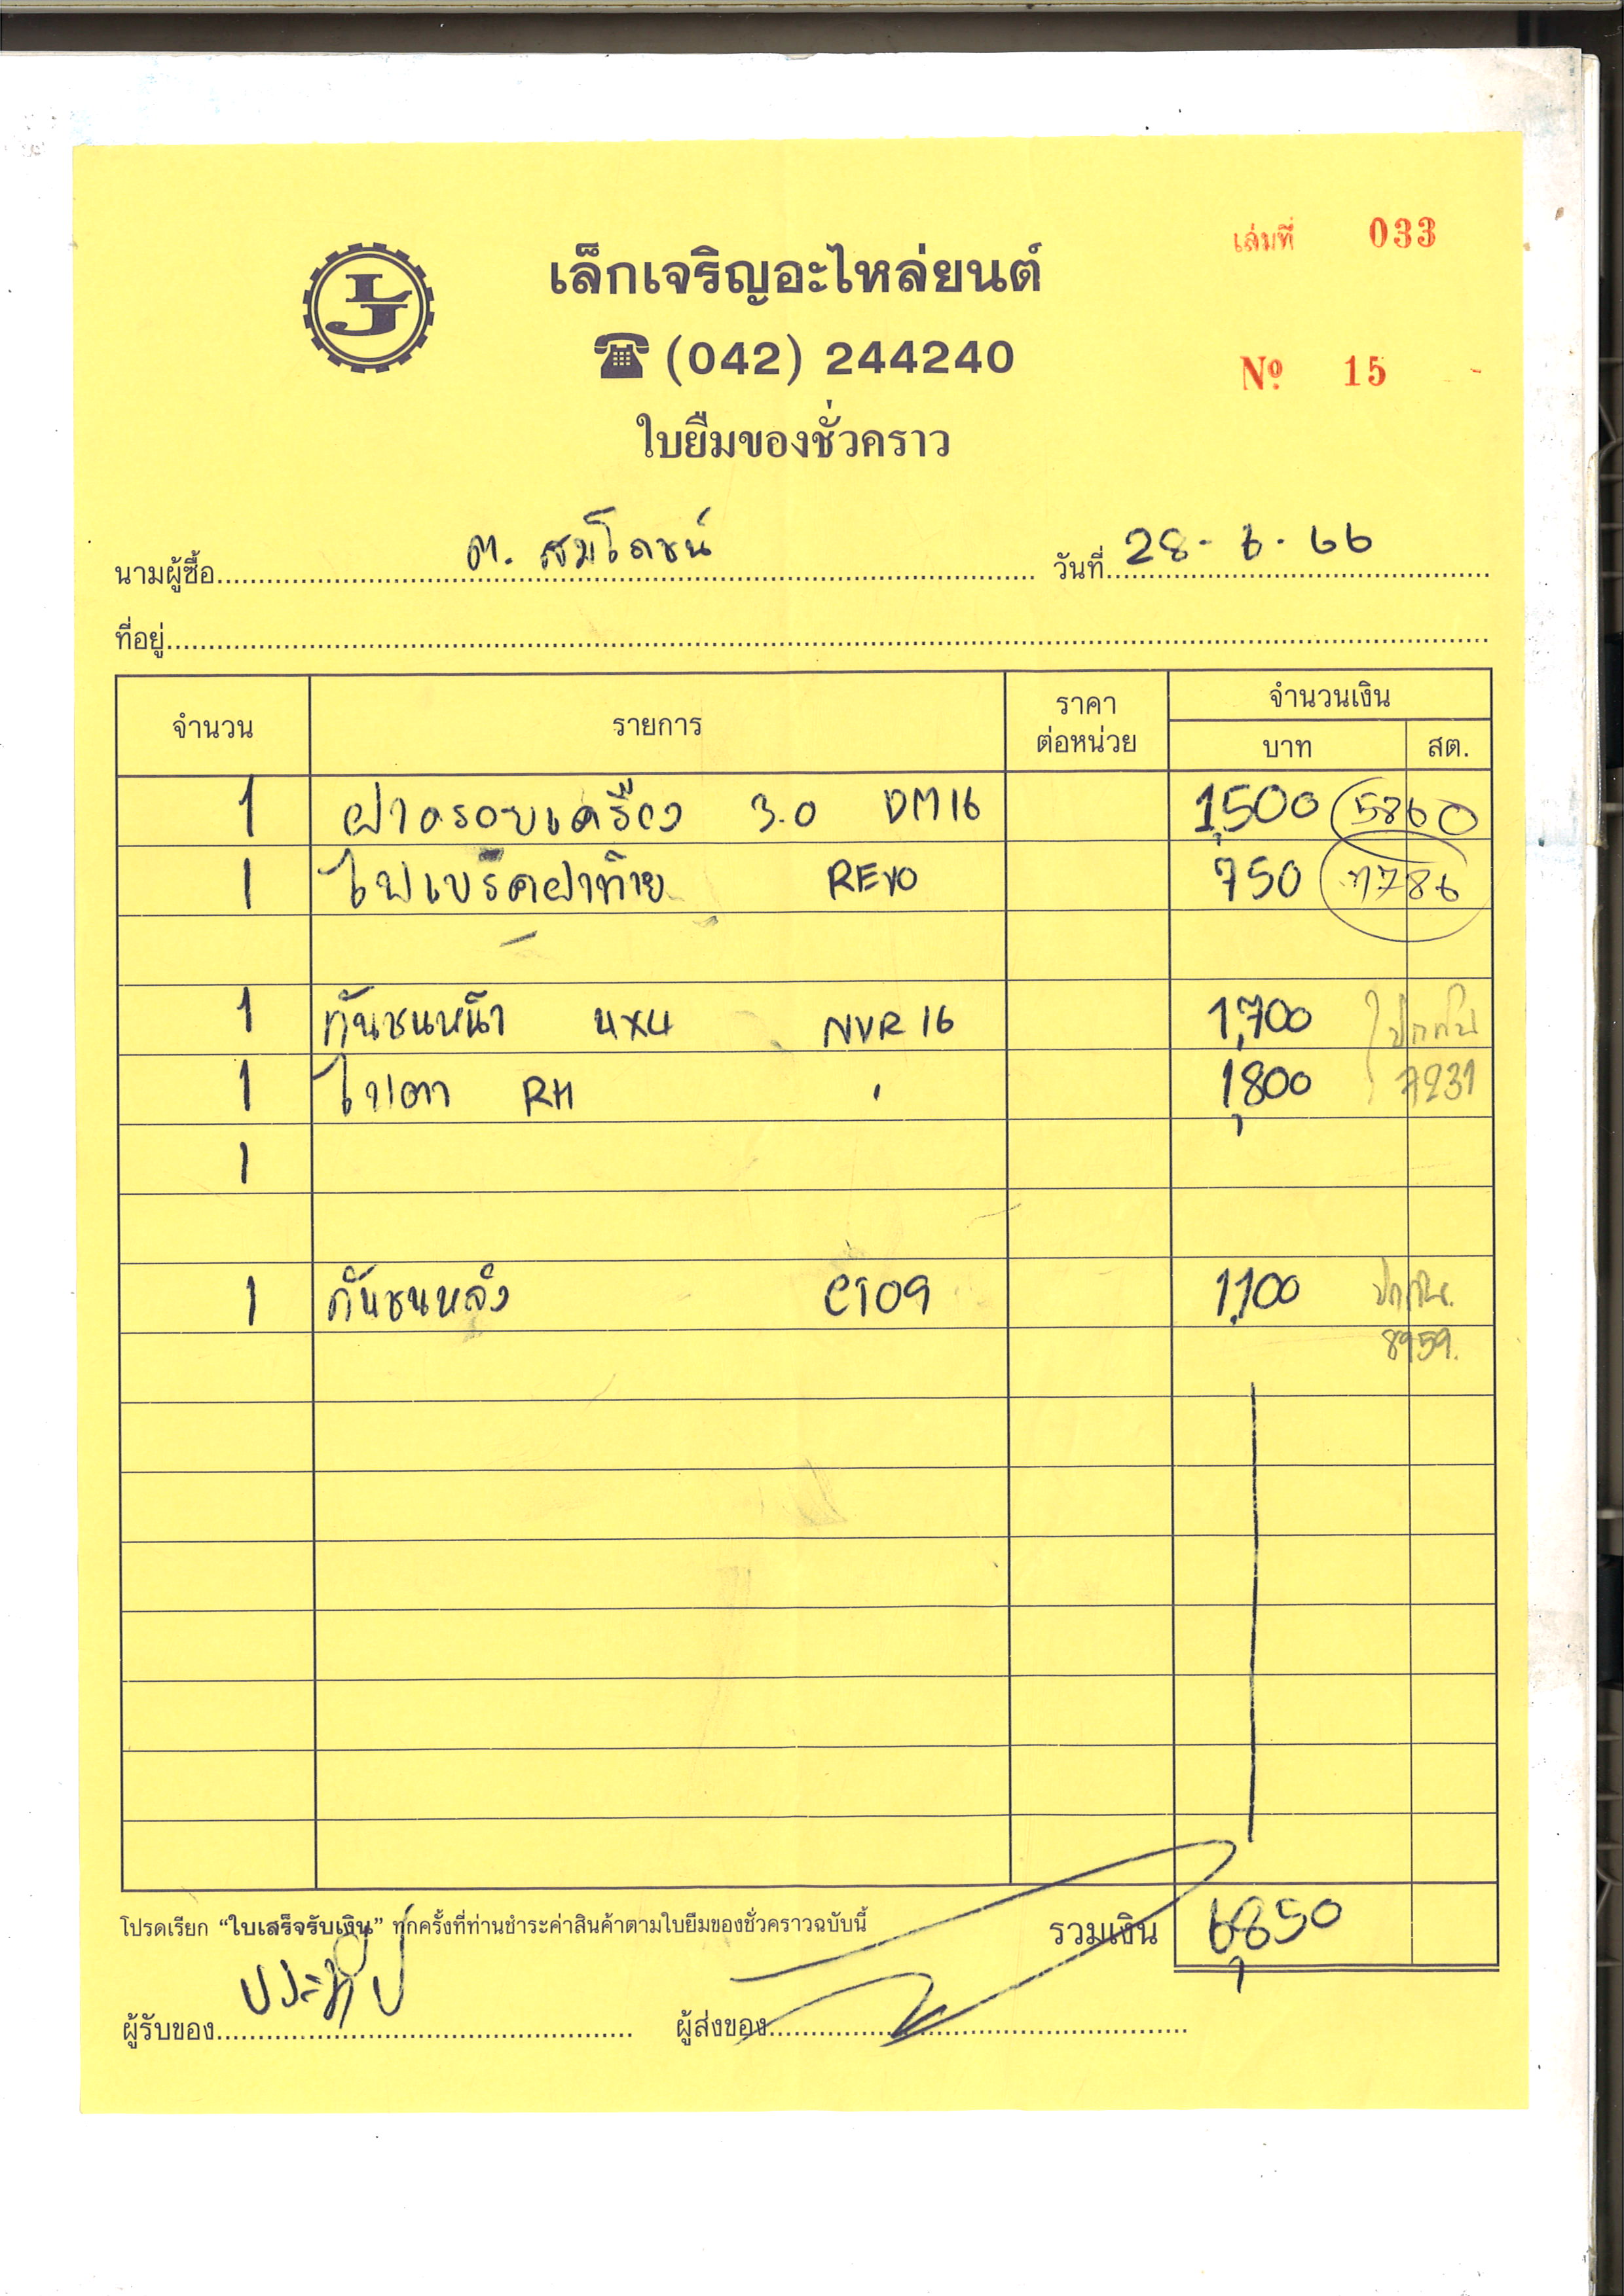 เล่มที่ 033
LJ
เล็กเจริญอะไหล่ยนต์
(042) 244240
Nº 15
ใบยืมของชั่วคราว
นามผู้ซื้อ ต. สมโภชน์ วันที่ 28-6-66
ที่อยู่
จำนวน รายการ ราคาต่อหน่วย จำนวนเงิน
บาท สต.
1 ฝาครอบเครื่อง 3.0 DM16 1,500 5860
1 ไฟเบรคฝาท้าย REVO 750 7786
1 กันชนหน้า 4x4 NVR 16 1,700
1 ไฟตา RH " 1,800 7231
1
1 กันชนหลัง CT09 1,100
8959.
โปรดเรียก “ใบเสร็จรับเงิน” ทุกครั้งที่ท่านชำระค่าสินค้าตามใบยืมของชั่วคราวฉบับนี้ รวมเงิน 6,850
ผู้รับของ ประทีป ผู้ส่งของ